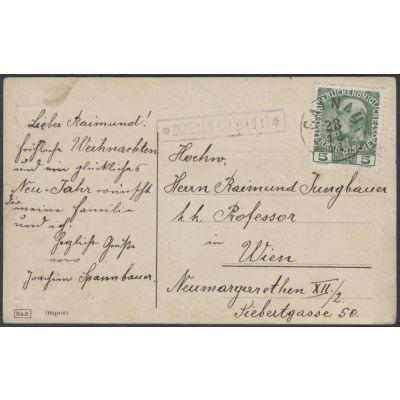 Lieber Raimund!
fröhliche Weihnachten
und ein glückliches
Neu-Jahr wünscht
Dir
meine Familie
und ich.
Herzliche Grüße
von
Joachim Spannbauer.
Hochw.
Herrn Raimund Jungbauer
k.k. Professor
in
Wien
Neumargarethen XII./2.
Siebertgasse 50.
28
5 5
N&S Import